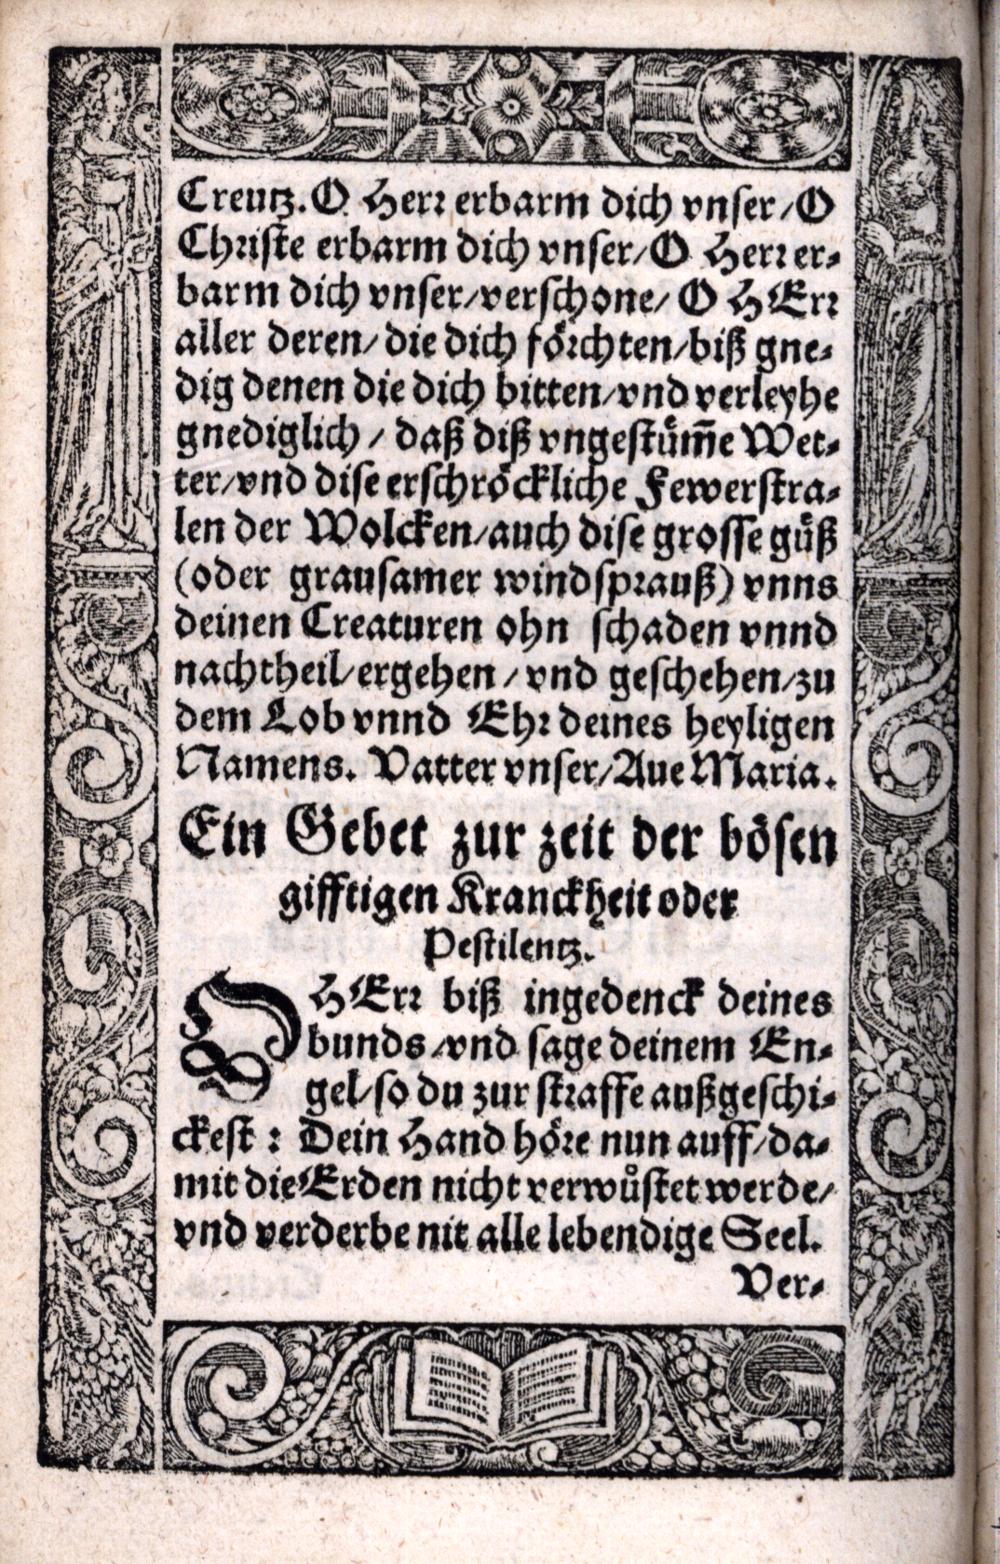 Creutz. O Herr erbarm dich vnser/ O
Christe erbarm dich vnser/ O Herr er-
barm dich vnser/ verschone/ O HErr
aller deren/ die dich förchten/ biß gne-
dig denen die dich bitten/ vnd verleyhe
gnediglich/ daß diß vngestüm̃e Wet-
ter/ vnd dise erschröckliche Fewerstra-
len der Wolcken/ auch dise grosse güß
(oder grausamer windsprauß) vnns
deinen Creaturen ohn schaden vnnd
nachtheil/ ergehen/ vnd geschehen/ zu
dem Lob vnnd Ehr deines heyligen
Namens. Vatter vnser/ Aue Maria.
Ein Gebet zur zeit der bösen
gifftigen Kranckheit oder
Pestilentz.
O HErr biß ingedenck deines
bunds/ vnd sage deinem En-
gel/ so du zur straffe außgeschi-
ckest: Dein Hand höre nun auff/ da-
mit die Erden nicht verwůstet werde/
vnd verderbe nit alle lebendige Seel.
Ver-